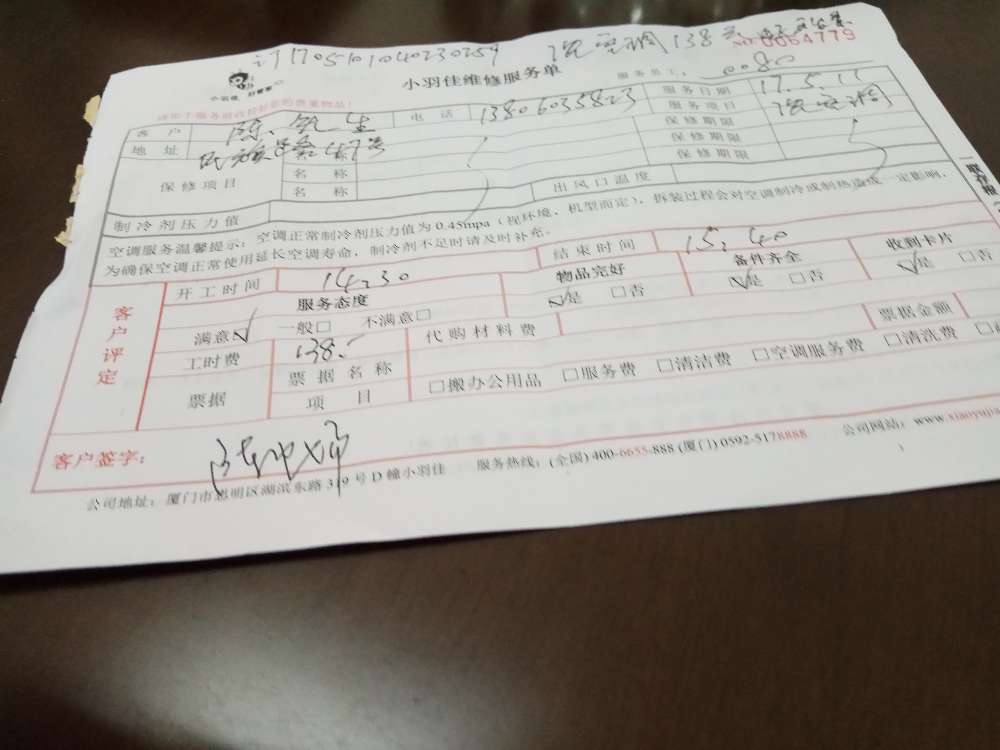 订1705101040230259 洗空调138元
NO.0064779
小羽佳 好管家
小羽佳维修服务单
服务员工: 0080
请在下服务前收好您的贵重物品!
客户 陈先生 电话 13806035823 服务日期 17.5.11
地址 47号 服务项目 洗空调
保修项目 名称 保修期限
名称 保修期限
保修期限
制冷剂压力值 出风口温度
空调服务温馨提示:空调正常制冷剂压力值为0.45mpa(视环境,机型而定),拆装过程会对空调制冷或制热造成一定影响,
为确保空调正常使用延长空调寿命,制冷剂不足时请及时补充。
客户评定
开工时间 14:30 结束时间 15:40
服务态度 物品完好 备件齐全 收到卡片
满意☑ 一般□ 不满意□ ☑是 □否 ☑是 □否 ☑是 □否
工时费 138. 代购材料费 票据金额
票据 票据名称
项目 □搬办公用品 □服务费 □清洁费 □空调服务费 □清洗费 □
客户签字:
公司地址:厦门市思明区湖滨东路319号D幢小羽佳 服务热线:(全国)400-6655-888(厦门)0592-5178888 公司网站:www.xiaoyujia
一联存根